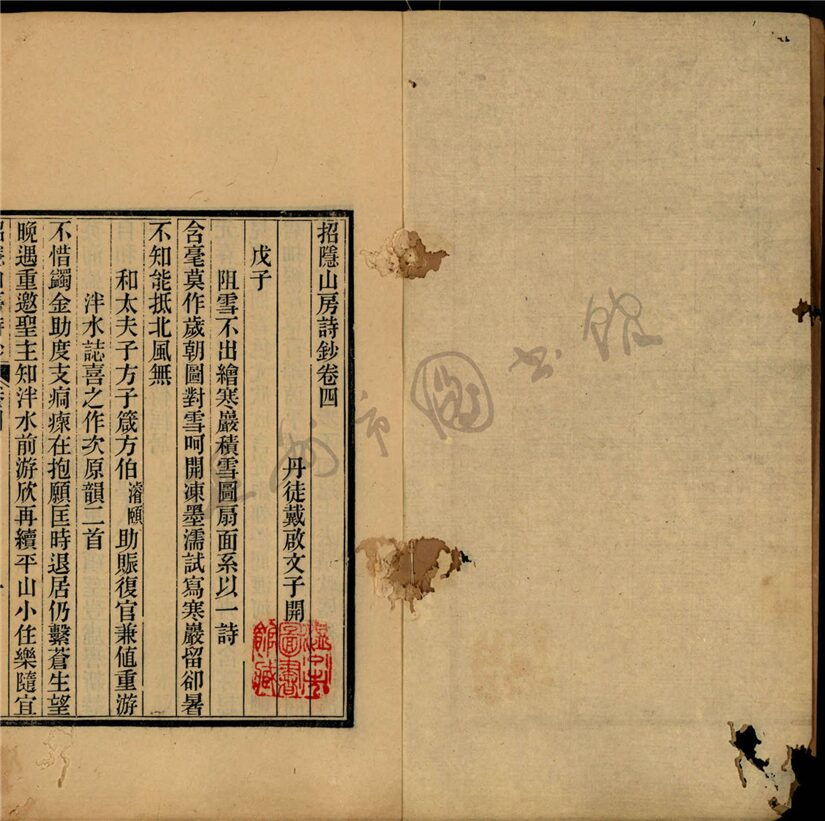 招隱山房詩鈔卷四
丹徒戴啟文子開
戊子
阻雪不出繪寒巖積雪圖扇面系以一詩
含毫莫作歲朝圖對雪呵開凍墨濡試寫寒巖留卻暑
不知能抵北風無
和太夫子方子箴方伯濬頤助賑復官兼值重游
泮水誌喜之作次原韻二首
不惜蠲金助度支痌瘝在抱願匡時退居仍繫蒼生望
晚遇重邀聖主知泮水前游欣再續平山小住樂隨宜
溫州市圖書館藏
州市圖书馆